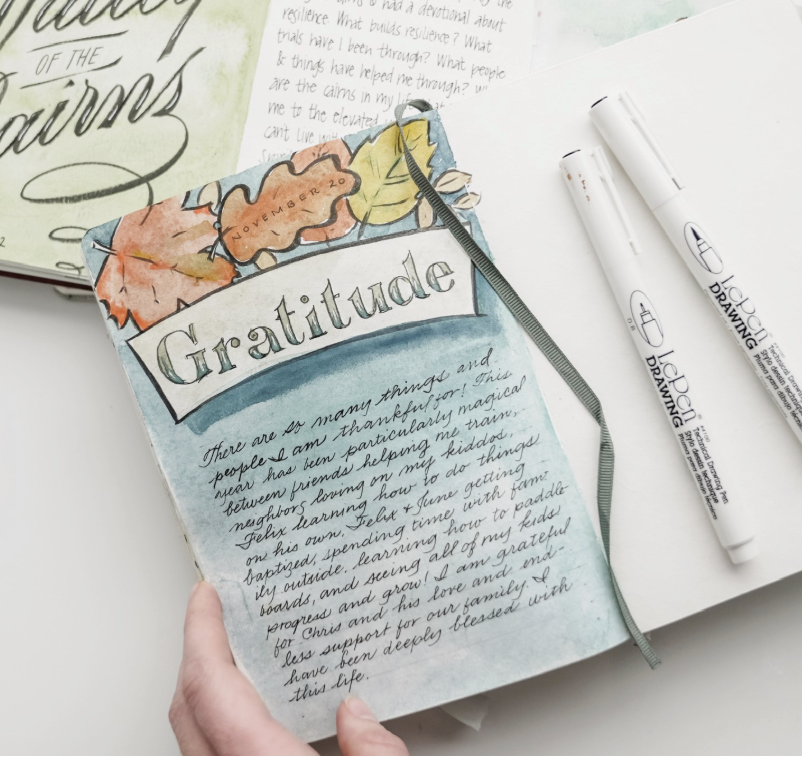 Valley
OF THE
Cairns
2
& had a devotional about
resilience. What builds resilience? What
trials have I been through? What people
& things have helped me through?
are the cairns in my life
me to the elevated
can't live
NOVEMBER 20
Gratitude
There are so many things and
people I am thankful for! This
year has been particularly magical
between friends helping me train,
neighbors loving on my kiddos,
Felix learning how to do things
on his own, Felix & June getting
baptized, spending time with fam-
ily outside, learning how to paddle
boards, and seeing all of my kids
progress and grow! I am grateful
for Chris and his love and end-
less support for our family. I
have been deeply blessed with
this life.
LePen
DRAWING
Technical Drawing Pen
Stylo dessin technique
Pluma para dibujo técnico
0.8
LePen
DRAWING
Technical Drawing
Stylo dessin technique
Pluma para dibujo